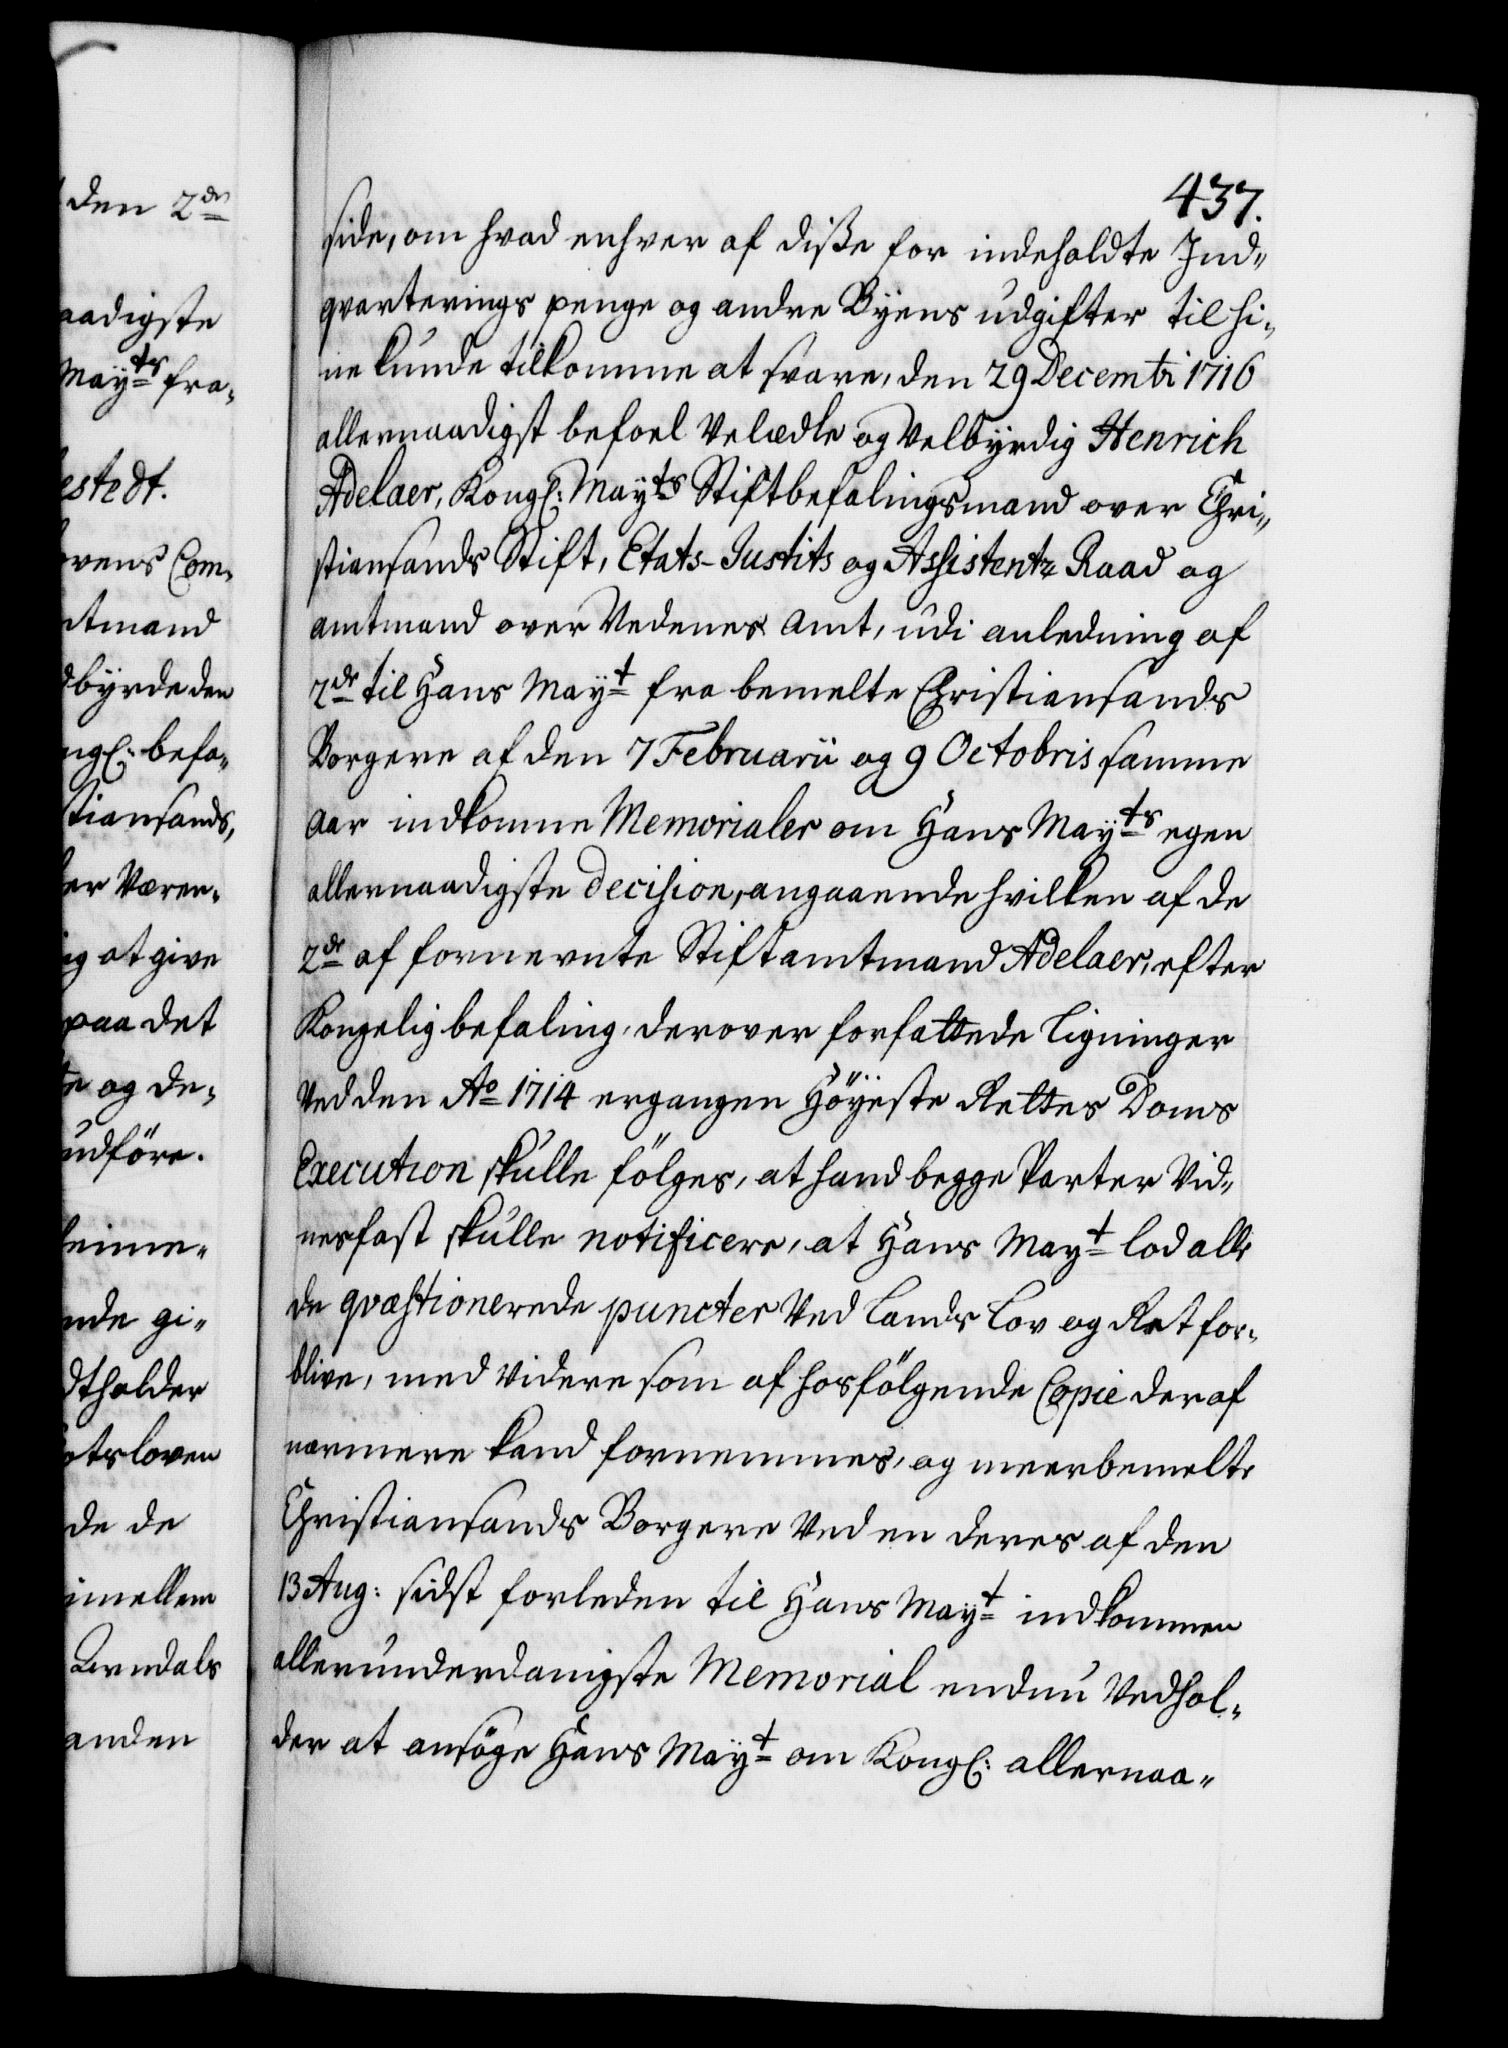 437.
side, om hvad enhver af diße for indeholdte Ind„
qvarterings penge og andre Byens udgifter til hi„
ne kunde tilkomme at svare, den 29 Decembr 1716
allernaadigst befoel Velædle og Velbyrdig Henrich
Adelaer, Kongl: Mayts Stiftbefalingsmand over Chri„
stiansands Stift, Etats-Justits og Assistentz Raad og
amtmand over Nedenes Amt, udi anledning af
2de til Hans Mayt fra bemelte Christiansands
Borgere af den 7 Februarii og 9 Octobris samme
Aar indkomne Memorialer om Hans Mayts egen
allernaadigste decision, angaaende hvilken af de
2de af fornevnte Stiftamtmand Adelaer, efter
Kongelig befaling, derover forfattede Ligninger
Ved den Ao 1714 ergangen Höyeste Rettes Doms
Execution skulle fölges, at hand begge Parter Vid„
nesfast skulle notificere, at Hans Mayt lod alle
de qvæstionerede puncter Ved Lands Lov og Ret for„
blive, med Videre som af hosfölgende Copie deraf
nærmere kand fornemmes, og meerbemelte
Christiansands Borgere Ved en deres af den
13 Aug: sidst forleden til Hans Mayt indkommen
allerunderdanigste Memorial endnu Vedhol„
der at ansöge Hans Mayt om Kongl: allernaa„
den 2de
aadigste
Mayts fra„
estedt.
ovens Com„
mtmand
dbyrde den
ngl: befa„
tiansands,
er Væren„
ig at give
paa det
te og de„
udföre.
eime„
nde gi„
dtholder
otsloven
de de
imellem
Arndals
anden